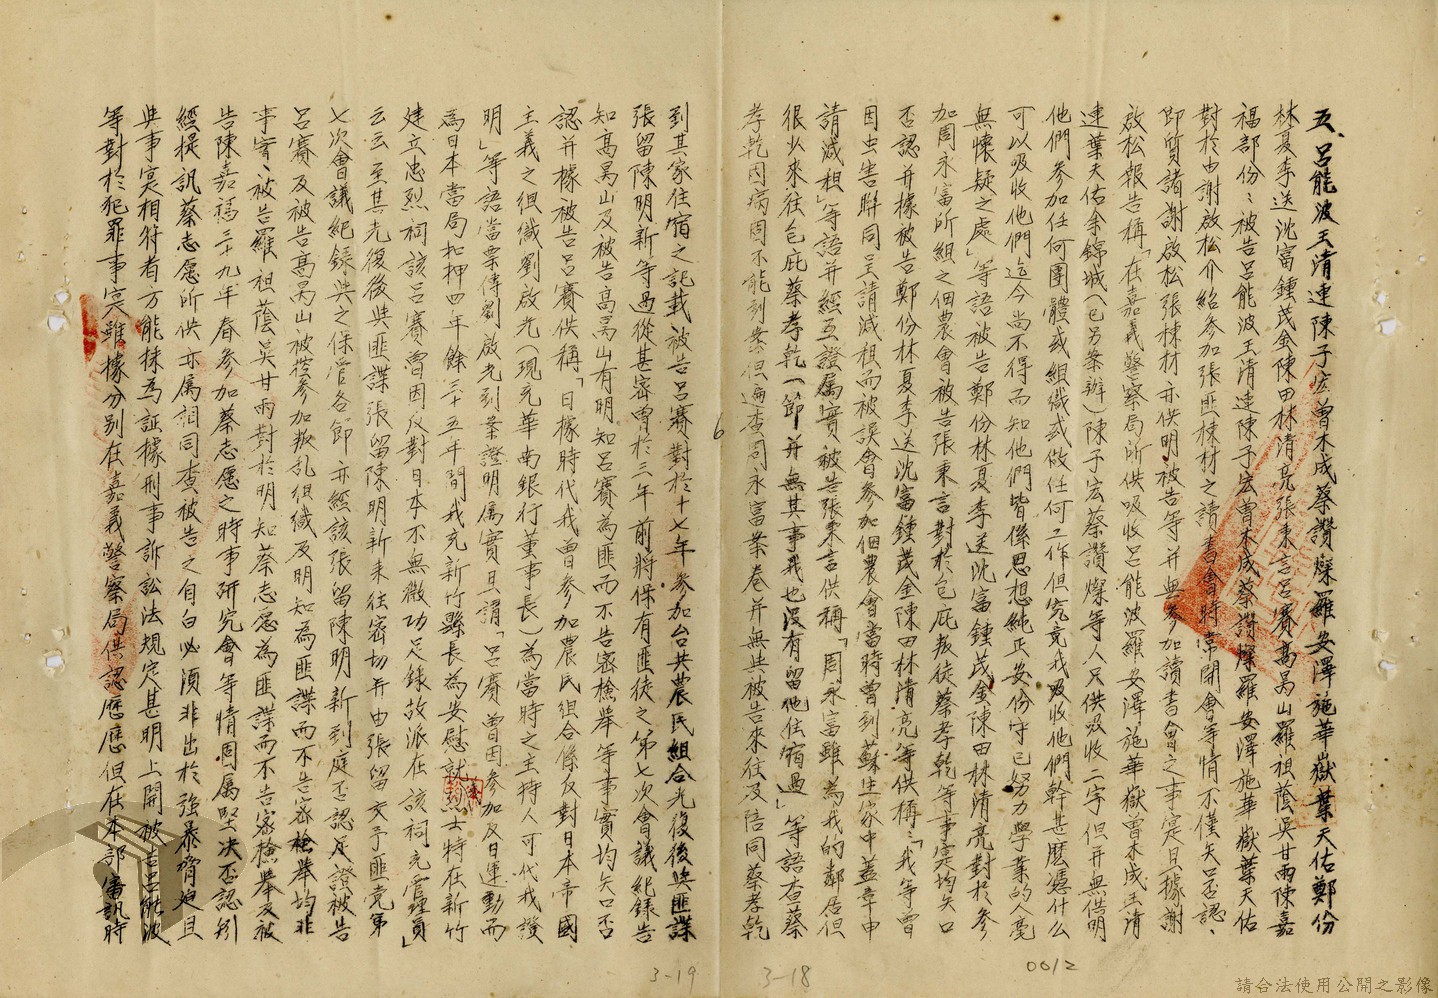 五、呂能波王清連陳子宏曾木成蔡讚燦羅安澤施華嶽葉天佑鄭份
林夏季送沈富鍾茂金陳田林清亮張秉言呂賽高昺山羅祖蔭吳甘雨陳嘉
福部份：被告呂能波王清連陳子宏曾木成蔡讚燦羅安澤施華嶽葉天佑
對於由謝啟松介紹參加張匪棟材之讀書會時常開會等情不僅矢口否認、
即質諸謝啟松張棟材亦供明被告等并無參加讀書會之事寔且據謝
啟松報告稱「在嘉義警察局所供吸收呂能波羅安澤施華嶽曾木成王清
連葉天佑余錦城(已另案辦)陳子宏蔡讚燦等人只供吸收二字但并無供明
他們參加任何團體或組織或做任何工作但究竟我吸收他們幹甚麼憑什么
可以吸收他們迄今尚不得而知他們皆係思想純正安份守已努力學業的人毫
無懷疑之處」等語被告鄭份林夏季送沈富鍾茂金陳田林清亮對於參
加周永富所組之佃農會被告張秉言對於包庇叛徒蔡孝乾等事寔均矢口
否認并據被告鄭份林夏季送沈富鍾茂金陳田林清亮等供稱：「我等曾
因虫害聯同呈請減租而被誤會參加佃農會當時曾到蘇生家中蓋章申
請減租」等語并經互證屬實被告張秉言供稱「周永富雖為我的鄰居但
很少來往包庇蔡孝乾一節并無其事我也沒有留他住宿過」等語查蔡
孝乾因病固不能到案但遍查周永富案卷并無其被告來往及陪同蔡孝乾
6
到其家住宿之記載被告呂賽對於十七年參加台共農民組合光復後與匪諜
張留陳明新等過從甚密曾於三年前將保有匪徒之第七次會議紀錄告
知高昺山及被告高昺山有明知呂賽為匪而不告密檢舉等事實均矢口否
認并據被告呂賽供稱「日據時代我曾參加農民組合係反對日本帝國
主義之組織劉啟光(現充華南銀行董事長)為當時之主持人可代我證
明」等語當票傳劉啟光到案證明屬實且謂「呂賽曾因參加反日運動而
為日本當局扣押四年餘三十五年間我充新竹縣長為安慰就烈士特在新竹
建立忠烈祠該呂賽曾因反對日本不無微功足錄故派在該祠充雇員」
云云至其光復後與匪諜張留陳明新來往密切并由張留交予匪党第
七次會議紀錄與之保管各節亦經該張留陳明新到庭否認足證被告
呂賽及被告高昺山被控參加叛乱組織及明知為匪諜而不告密檢舉均非
事實、被告羅祖蔭吳甘雨對於明知蔡志愿為匪諜而不告密檢舉及被
告陳嘉福三十九年春參加蔡志愿之時事研究會等情固属堅決否認刻
經提訊蔡志愿所供亦属相同查被告之自白必須非出於強暴脅迫且
與事寔相符者方能採為証據刑事訴訟法規定甚明上開被告呂能波
等對於犯罪事寔雖據分別在嘉義警察局供認歷歷但在本部審訊時
3-19
3-18
0012
請合法使用公開之影像